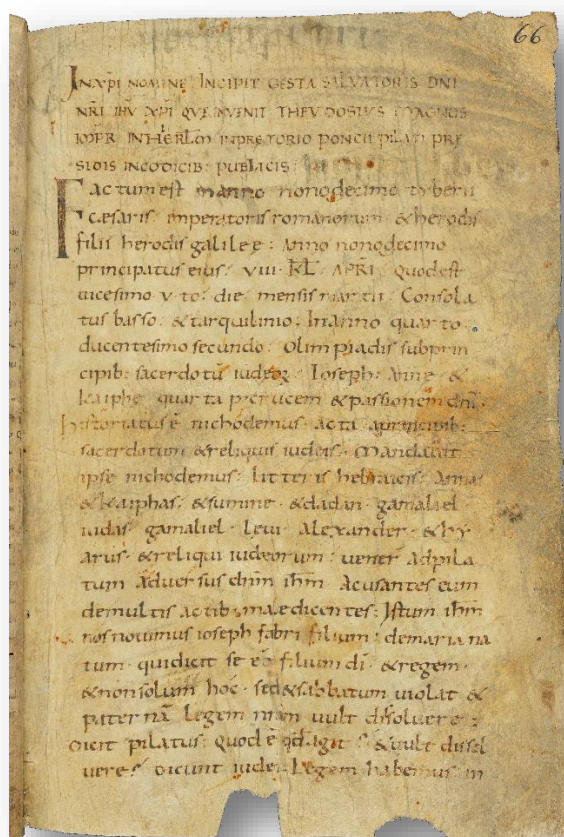 66
IN XPI NOMINE INCIPIT GESTA SALVATORIS DNI
NRI IHU XPI QUE INVENIT THEVDOSIUS MAGNUS
IMPR IN HIERLM IN PRETORIO PONCII PILATI PRE
SIDIS IN CODICIB: PUBLICIS:
Factum est in anno nonodecimo tyberii
cæsaris imperatoris romanorum & herodis
filii herodis galileę: Anno nonodecimo
principatus eius: VIII KL APRI quod est
uicesimo v to: die mensis martii Consola
tus basso & tarquilinio: In anno quarto
ducentesimo secundo: Olimpiadis sub prin
cipib: sacerdotū iudeoꝝ Ioseph: Anne &
kaiphe quarta p crucem & passionem dni:
historiatus ē nichodemus acta a principib:
sacerdotum & reliquis iudeis: Mandauit
ipse nichodemus: litteris hebraicis. Annas
& kaiphas & sumine & dadan gamaliel
iudas gamaliel leui Alexander & hy
arus & reliqui iudeorum: uener ad pila
tum aduersus dnm ihm acusantes eum
de multis actib: male dicentes: Istum ihm
nos nouimus ioseph fabri filium: de maria na
tum quidicit se eē filium di & regem
& non solum hoc sed & sabbatum uiolat &
paternā legem nram uult dissoluere:
Dicit pilatus: quod ē qd agit & uult dissol
uere? Dicunt iudei Legem habemus in